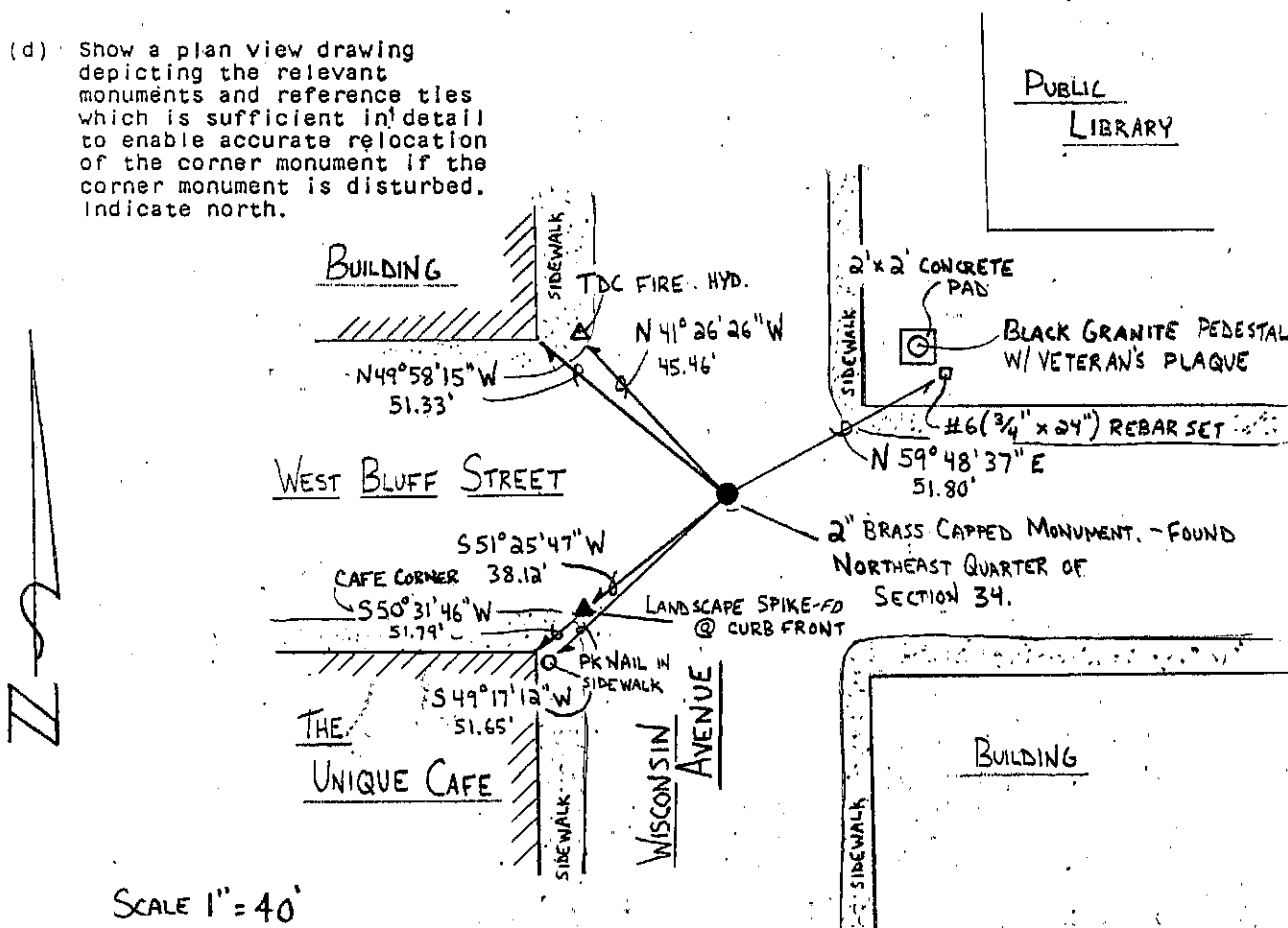 (d) Show a plan view drawing
depicting the relevant
monuments and reference ties
which is sufficient in detail
to enable accurate relocation
of the corner monument if the
corner monument is disturbed.
Indicate north.
PUBLIC
LIBRARY
BUILDING
SIDEWALK
TDC FIRE. HYD.
N 41° 26' 26" W
45.46'
N49°58'15" W
51.33'
2'x 2' CONCRETE
PAD
SIDEWALK
BLACK GRANITE PEDESTAL
W/ VETERAN'S PLAQUE
#6 (3/4" x 24") REBAR SET
N 59° 48' 37" E
51.80'
WEST BLUFF STREET
2" BRASS CAPPED MONUMENT. - FOUND
NORTHEAST QUARTER OF
SECTION 34.
S51°25'47" W
38.12'
CAFE CORNER
S50°31'46" W
51.79'
LANDSCAPE SPIKE-FD
@ CURB FRONT
PK NAIL IN
SIDEWALK
S49°17'12" W
51.65'
THE
UNIQUE CAFE
SIDEWALK
WISCONSIN
AVENUE
BUILDING
SIDEWALK
N
SCALE 1" = 40'